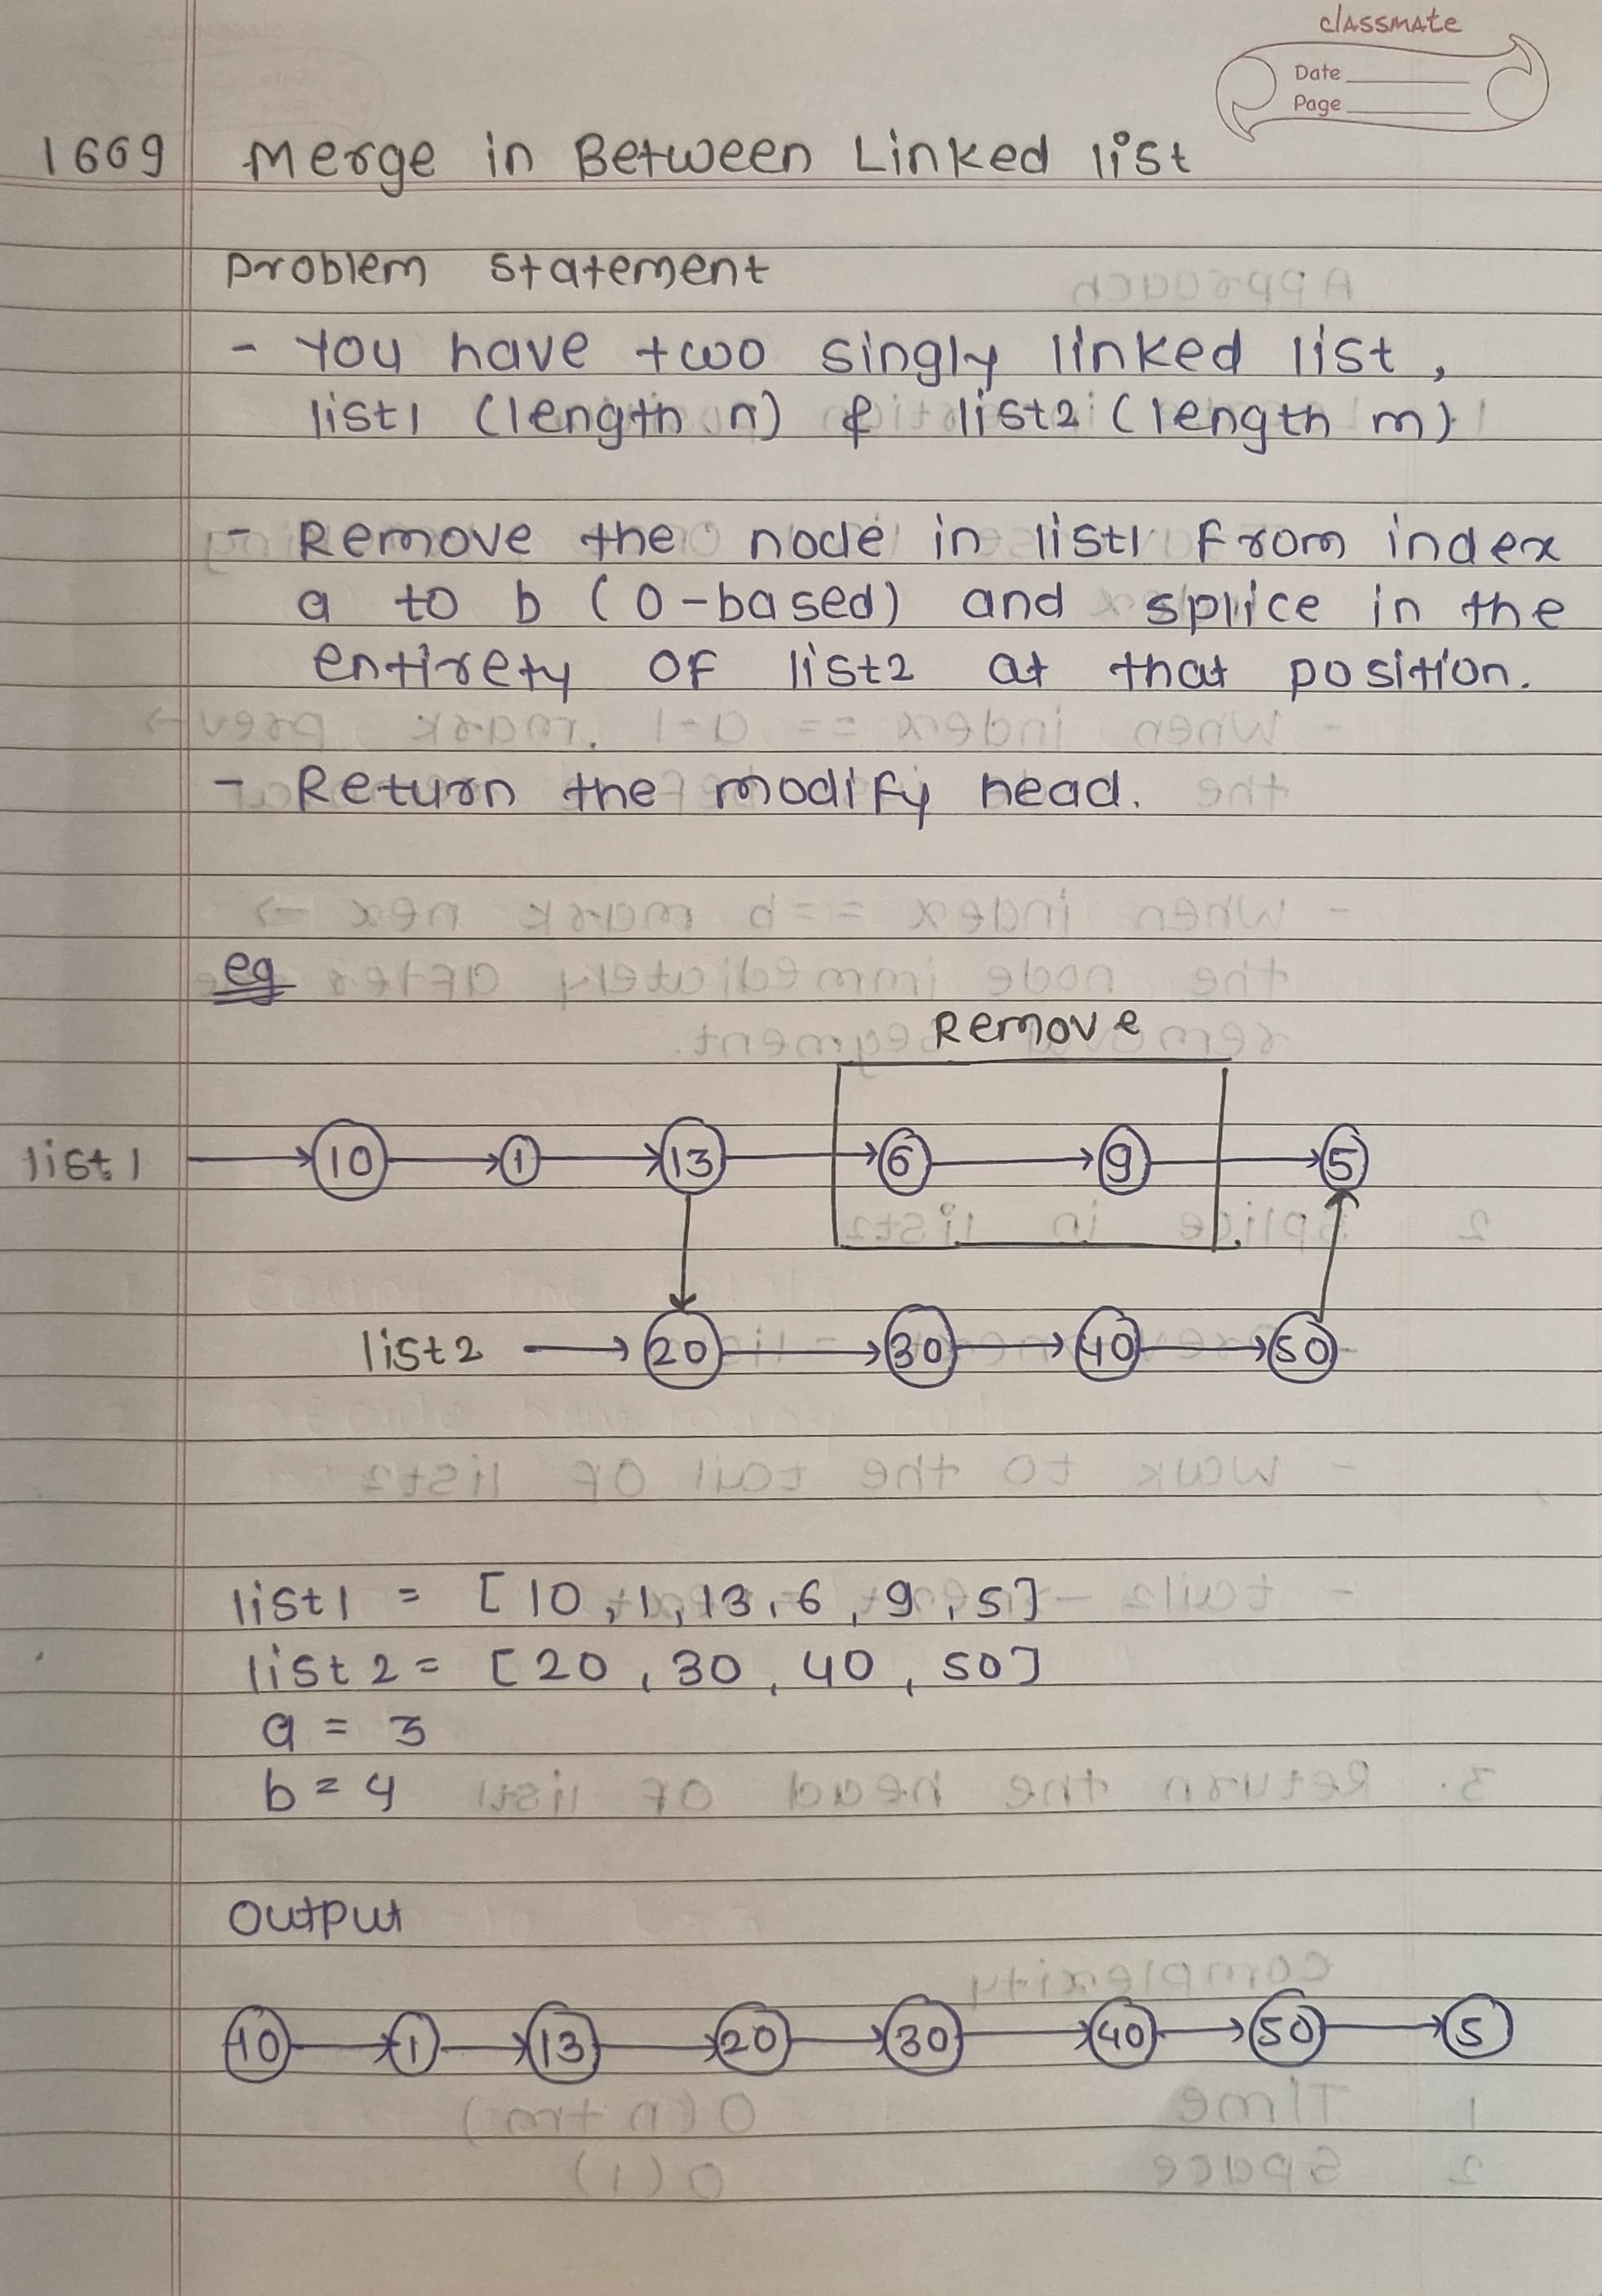 classmate
Date
Page
1669 Merge in Between Linked list
Problem statement
- You have two singly linked list,
list1 (length n) & list2 (length m)
- Remove the node in list1 from index
a to b (0-based) and splice in the
entirety of list2 at that position.
- Return the modify head.
eg
Remove
list1 10 1 13 6 9 5
list2 20 30 40 50
list1 = [10, 1, 13, 6, 9, 5]
list2 = [20, 30, 40, 50]
a = 3
b = 4
Output
10 1 13 20 30 40 50 5